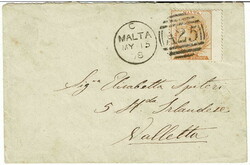 C
MALTA
MY 15
A25
Sig.ra Elisabetta Spiteri
5 Str. Irlandese
Valletta